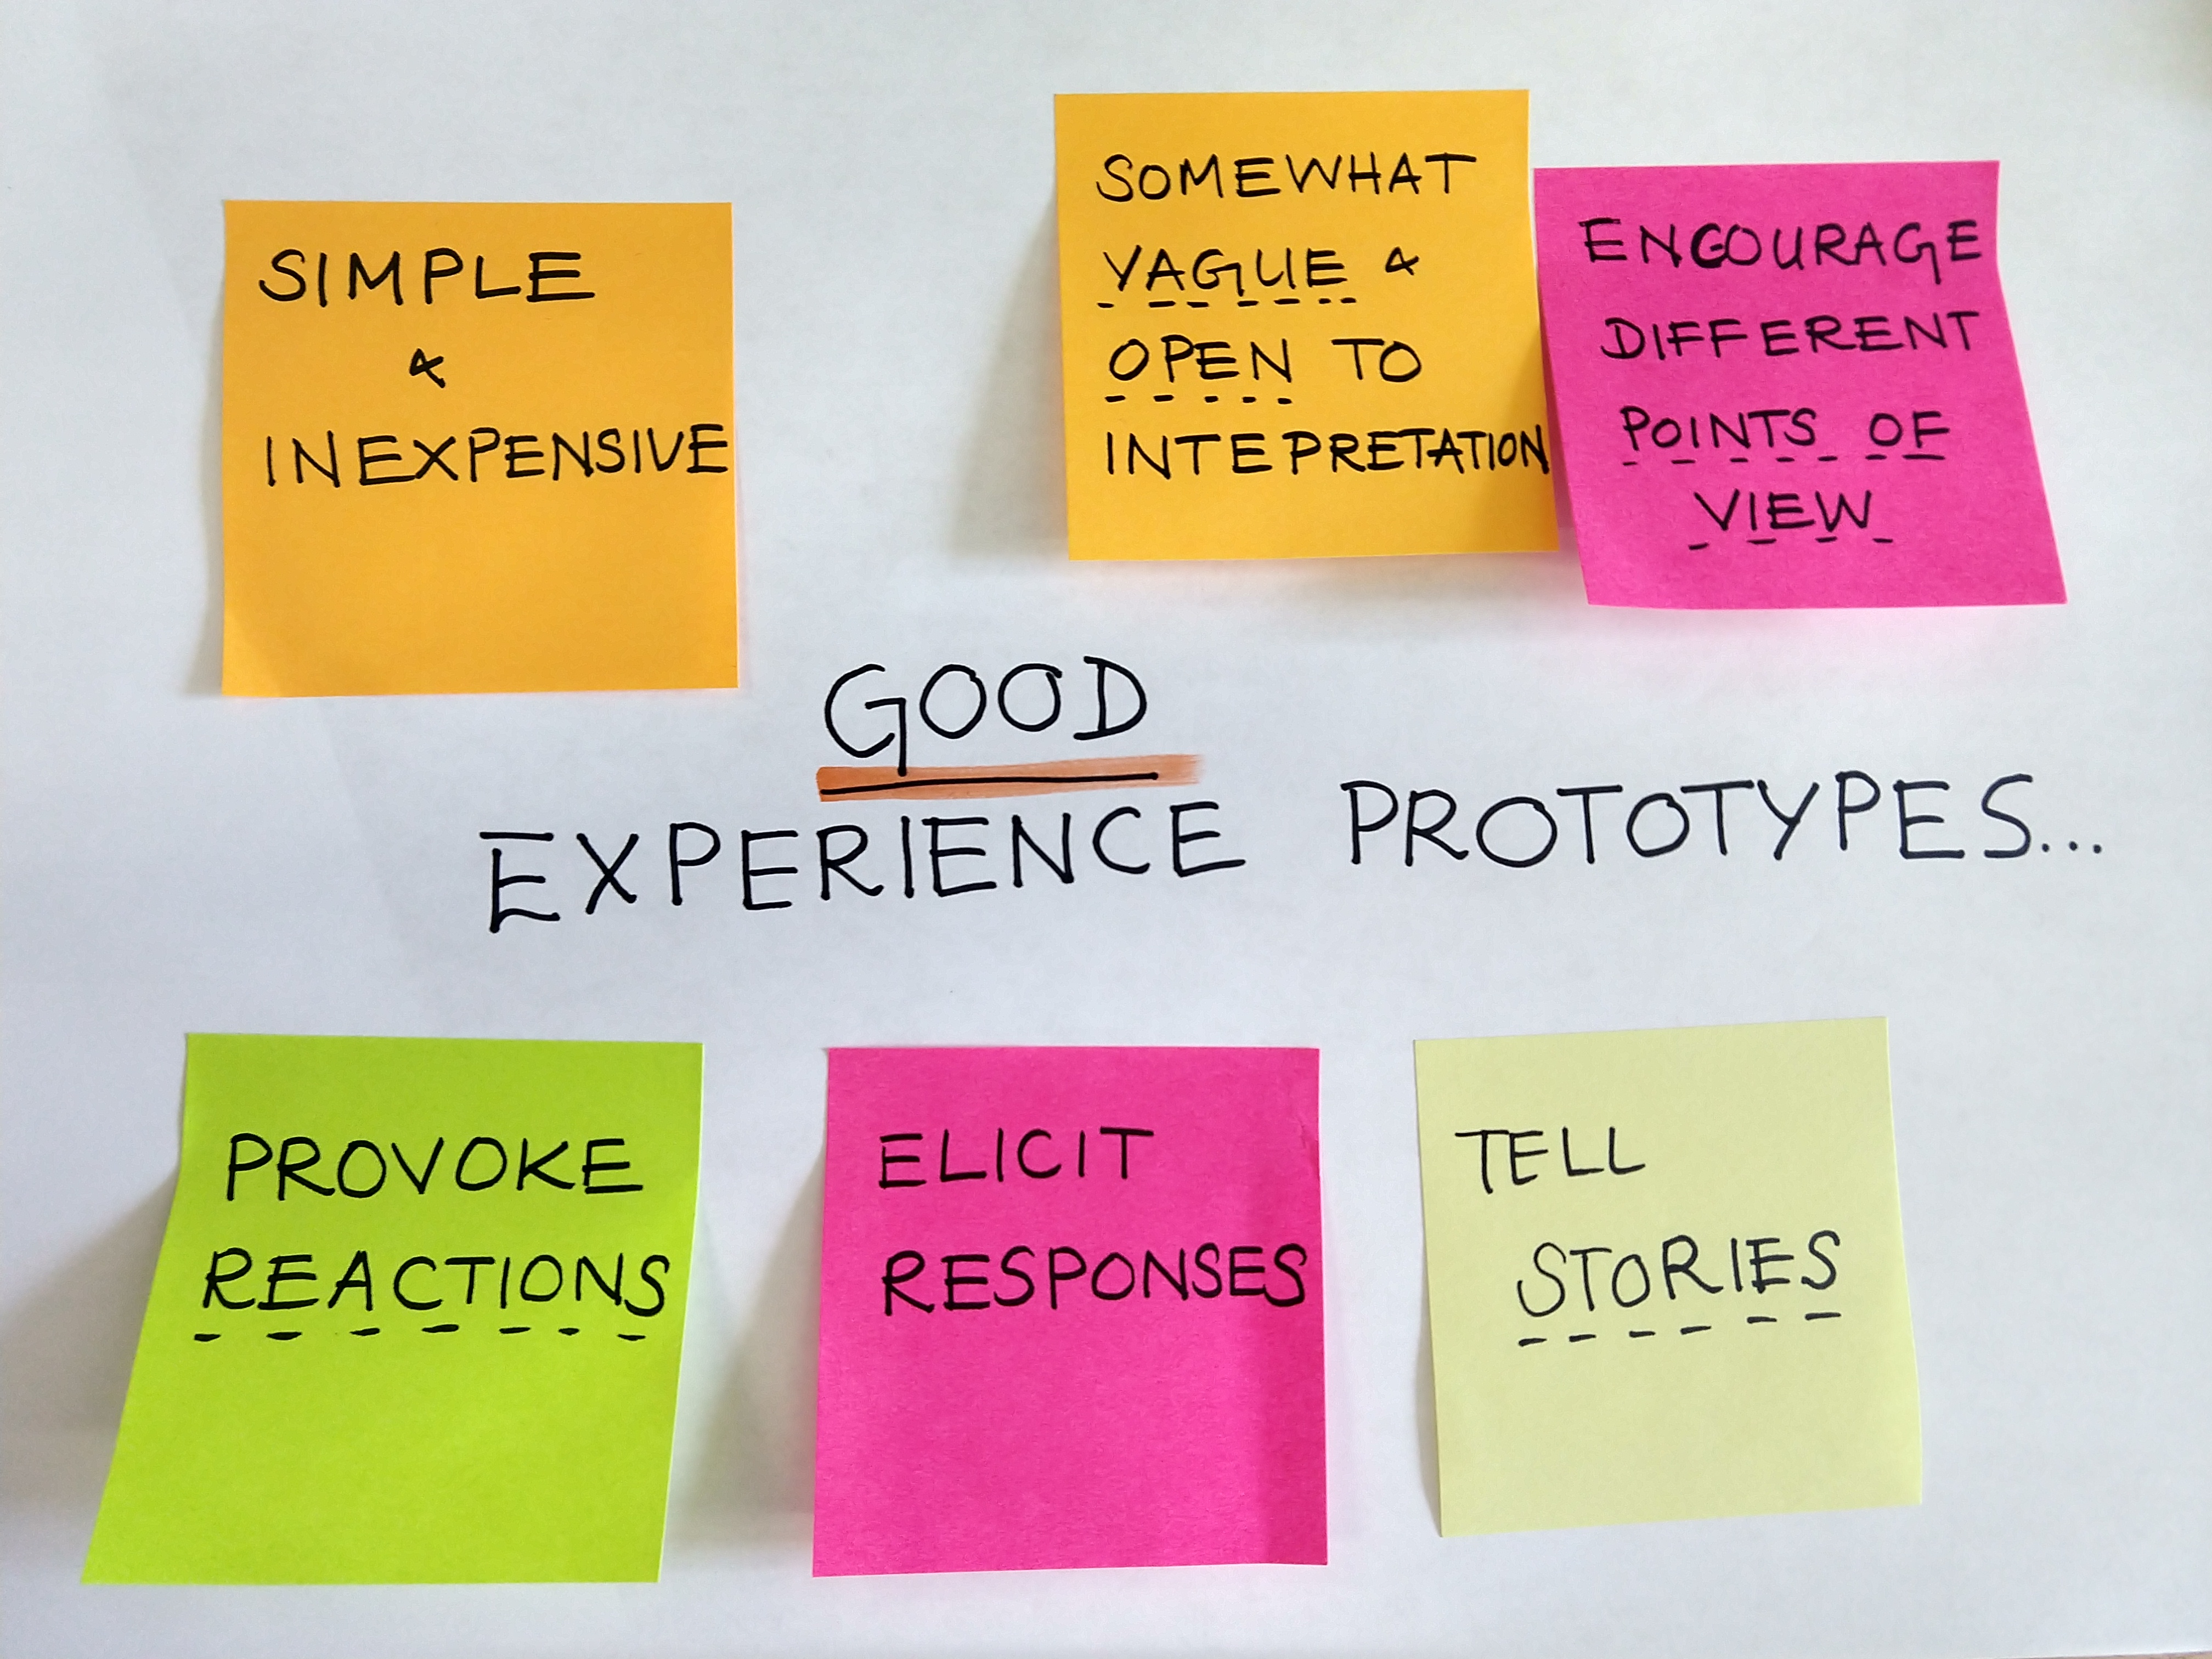 SIMPLE
&
INEXPENSIVE
SOMEWHAT
VAGUE &
OPEN TO
INTEPRETATION
ENCOURAGE
DIFFERENT
POINTS OF
VIEW
GOOD
EXPERIENCE PROTOTYPES...
PROVOKE
REACTIONS
ELICIT
RESPONSES
TELL
STORIES